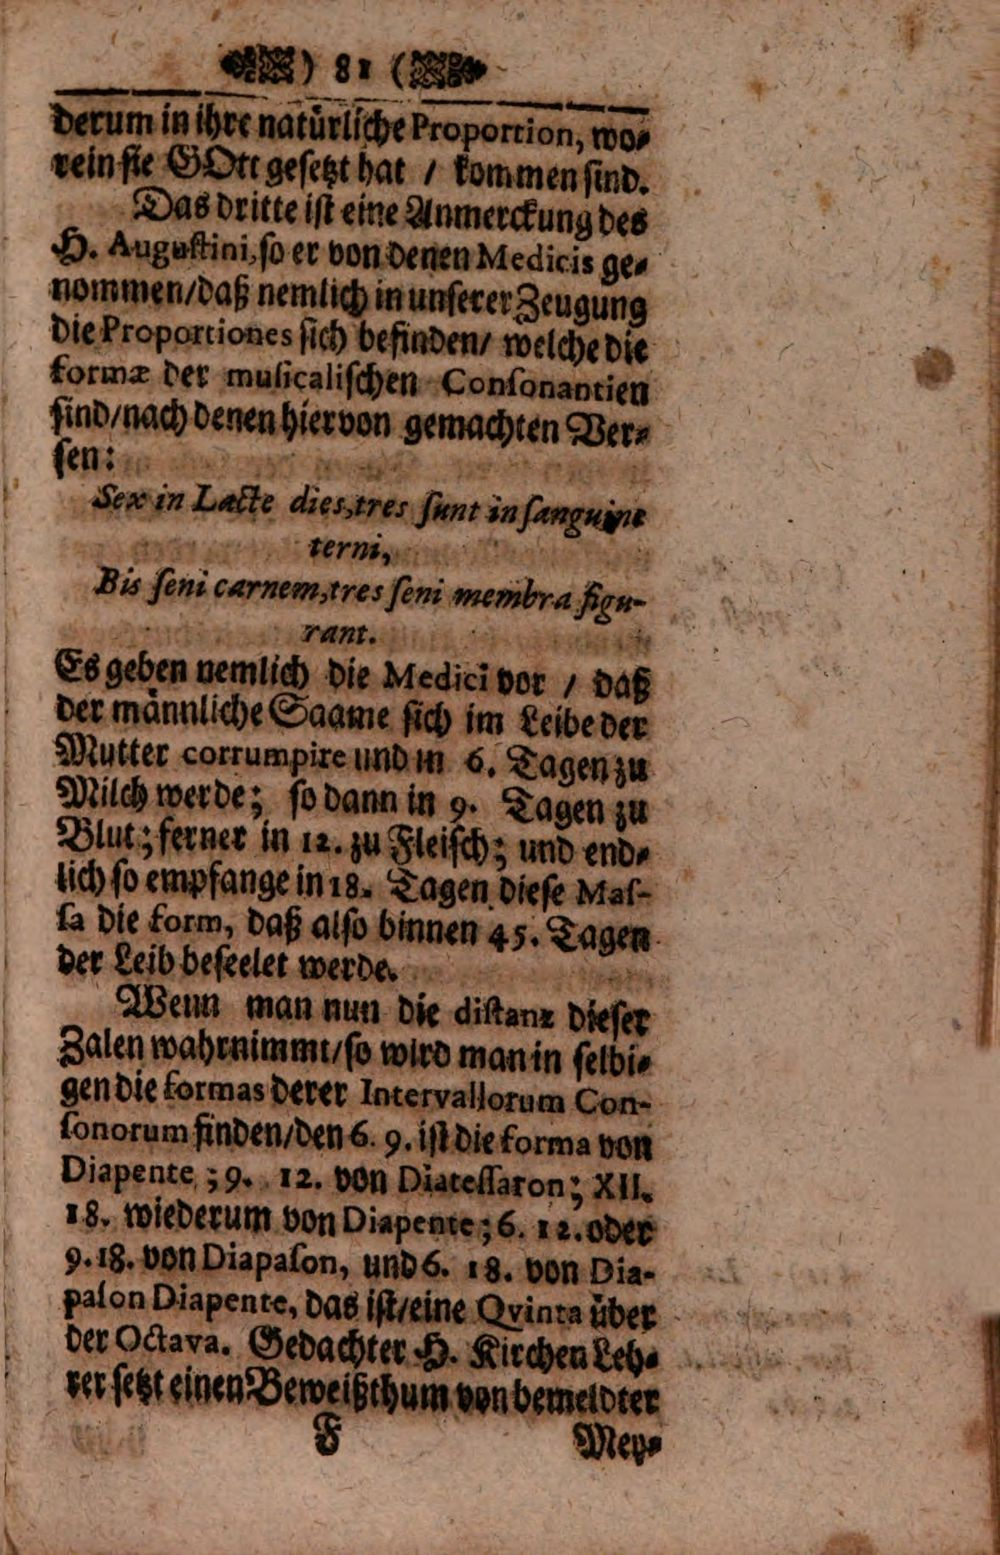 ) 81 (
derum in ihre natuͤrliche Proportion, wo-
rein sie GOtt gesetzt hat / kommen sind.
Das dritte ist eine Anmerckung des
H. Augustini, so er von denen Medicis ge-
nommen/daß nemlich in unserer Zeugung
die Proportiones sich befinden/ welche die
formæ der musicalischen Consonantien
sind/nach denen hiervon gemachten Ver-
sen:
Sex in Lacte dies, tres sunt in sanguine
terni,
Bis seni carnem, tres seni membra figu-
rant.
Es geben nemlich die Medici vor / daß
der maͤnnliche Saame sich im Leibe der
Mutter corrumpire und in 6. Tagen zu
Milch werde; so dann in 9. Tagen zu
Blut; ferner in 12. zu Fleisch; und end-
lich so empfange in 18. Tagen diese Mas-
sa die form, daß also binnen 45. Tagen
der Leib beseelet werde.
Wenn man nun die distanz dieser
Zalen wahrnimmt/so wird man in selbi-
gen die formas derer Intervallorum Con-
sonorum finden/den 6. 9. ist die forma von
Diapente; 9. 12. von Diatessaron; XII.
18. wiederum von Diapente; 6. 12. oder
9. 18. von Diapason, und 6. 18. von Dia-
pason Diapente, das ist/eine Qvinta uͤber
der Octava. Gedachter H. Kirchen Leh-
rer setzt einen Beweißthum von bemeldter
F Mey-